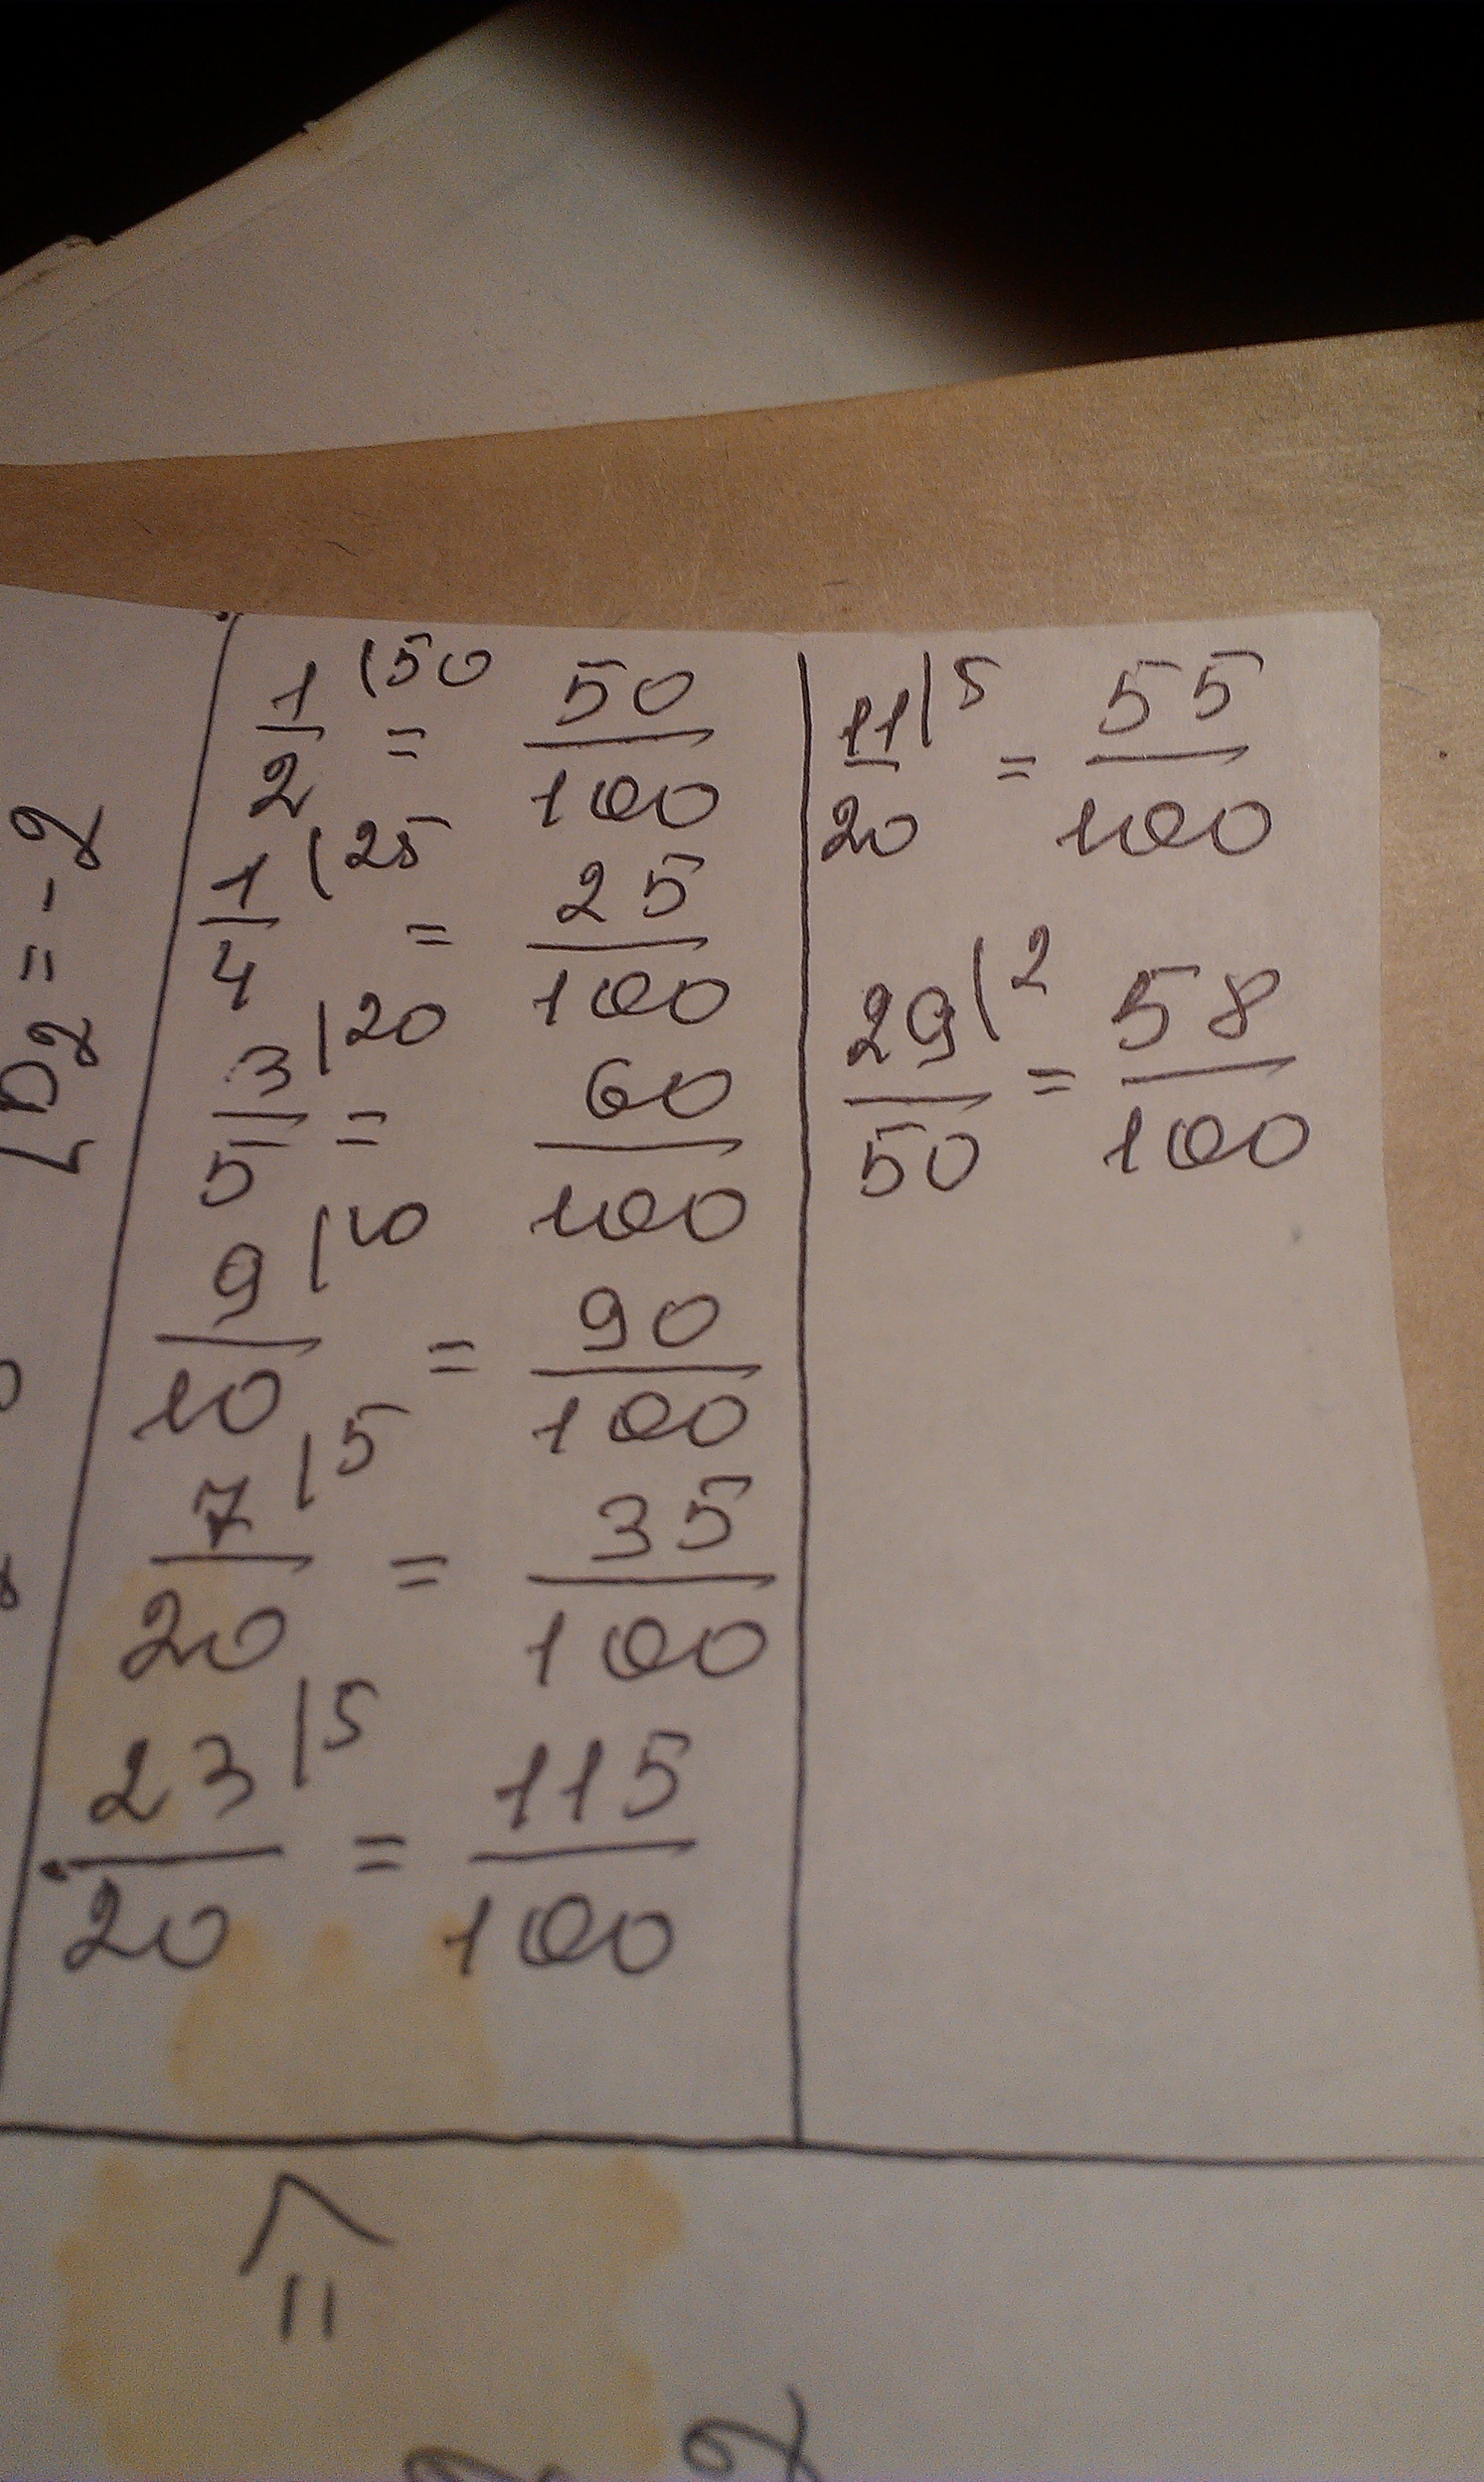 1/2 |50 = 50/100
1/4 |25 = 25/100
3/5 |20 = 60/100
9/10 |10 = 90/100
7/20 |5 = 35/100
23/20 |5 = 115/100
11/20 |5 = 55/100
29/50 |2 = 58/100